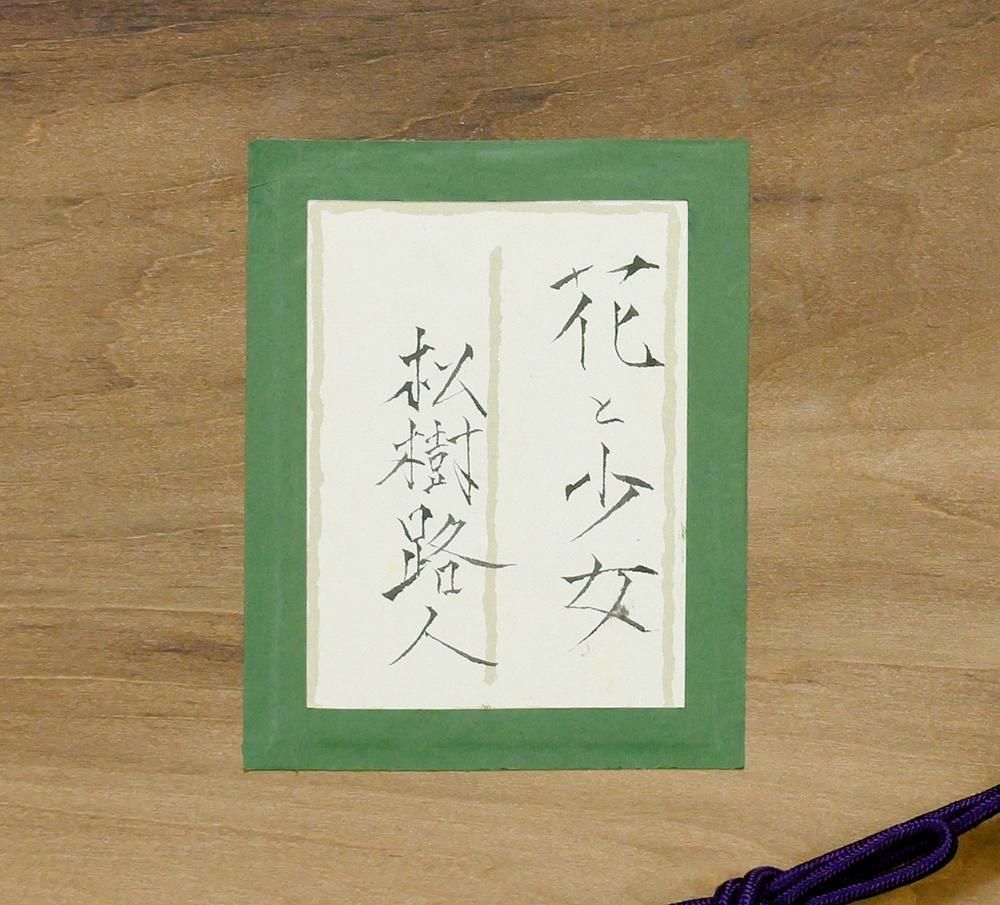 花と少女
松樹路人